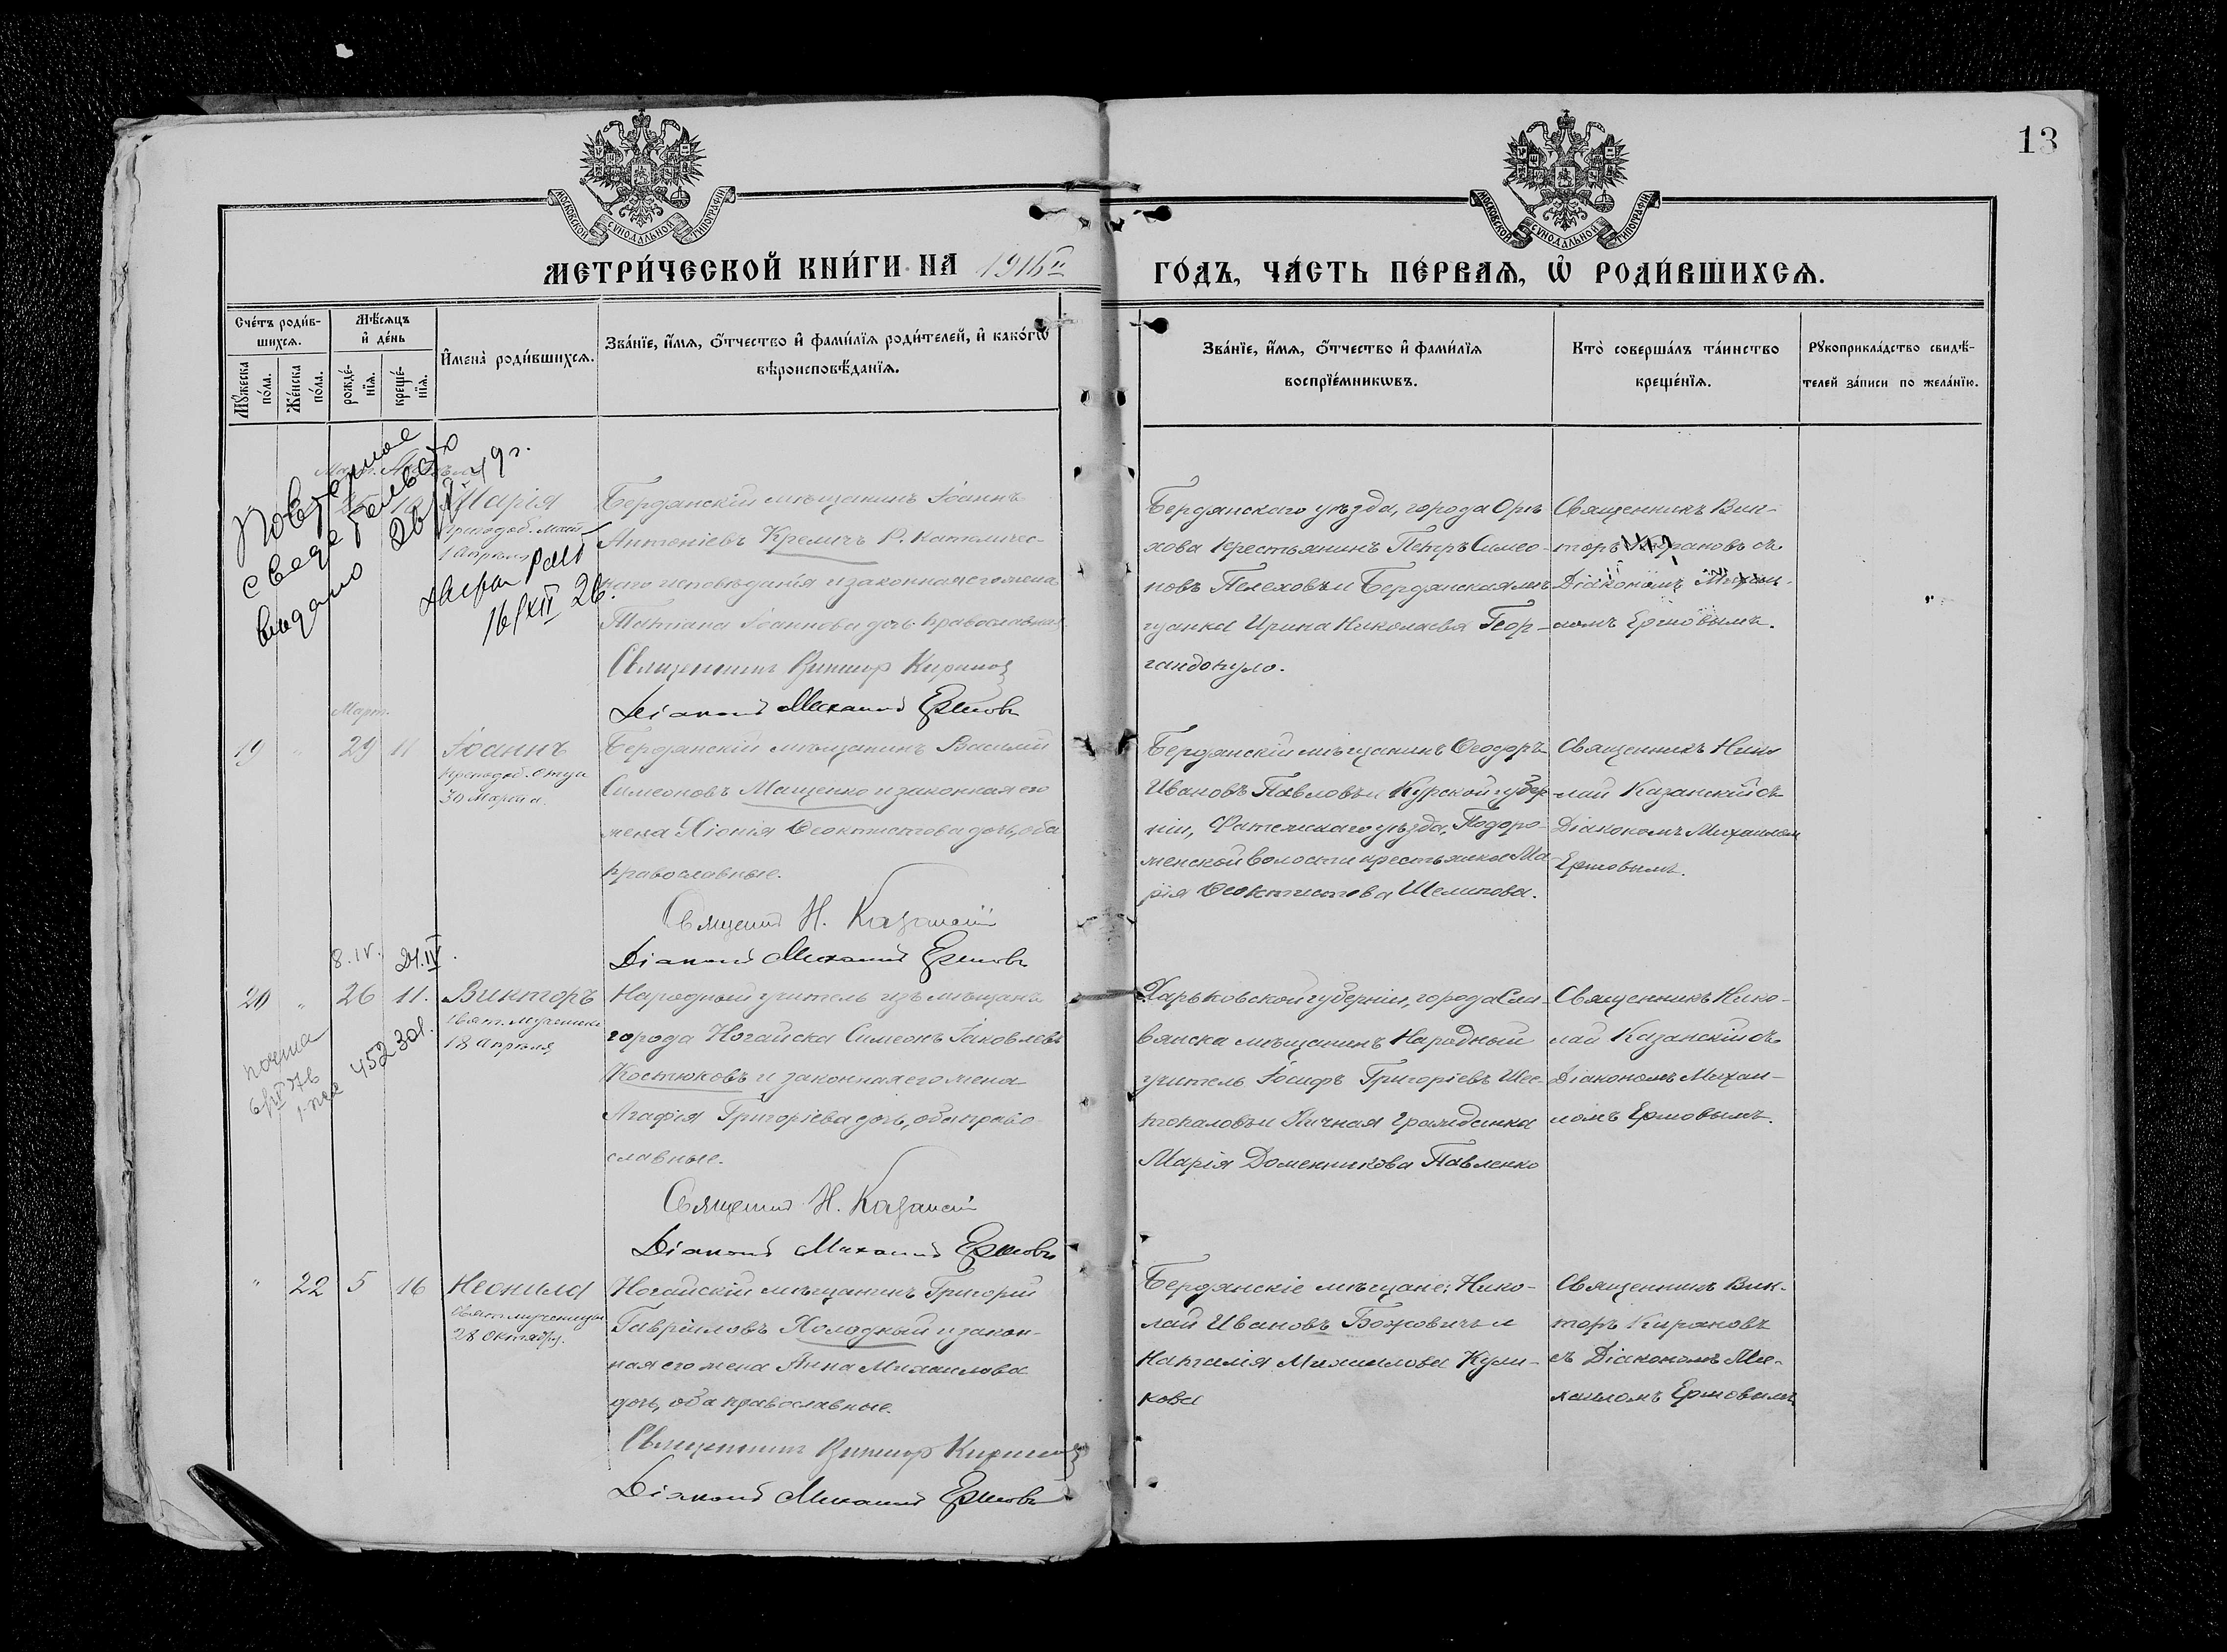 13
МОСКОВСКОЙ СѴНОДАЛЬНОЙ ТИПОГРАФІИ
МОСКОВСКОЙ СѴНОДАЛЬНОЙ ТИПОГРАФІИ
МЕТРИ́ЧЕСКОЙ КНИ́ГИ НА 1916й ГО́ДЪ, ЧА́СТЬ ПЕ́РВАѦ, Ѽ РОДИ́ВШИХСѦ.
Сче́тъ роди́в-
шихсѧ.
Мꙋ́жеска по́ла.
Же́нска по́ла.
Мѣ́сѧцъ и҆ де́нь
рожде́-нїѧ.
креще́-нїѧ.
И҆мена̀ роди́вшихсѧ.
Зва́нїе, и҆́мѧ, ѻ҆́тчество и҆ фами́лїѧ роди́телей, и҆ како́гѡ
вѣроисповѣ́данїѧ.
Зва́нїе, и҆́мѧ, ѻ҆́тчество и҆ фами́лїѧ
воспрїе́мникѡвъ.
Кто̀ соверша́лъ та́инство
креще́нїѧ.
Рꙋкоприкла́дство свидѣ́-
телей за́писи по жела́нїю.
Повторное
свидетельство
выдано
49 г.
16/XII 26.
Марія
Преподоб. Мат.
1 Апрѣля
Бердянскій мѣщанинъ Іоаннъ
Антоніевъ Кремичъ Р. католичес-
каго исповѣданія и законная его жена
Татіана Іоаннова дочь православная
Священникъ Викторъ Кирановъ
Діаконъ Михаилъ Ершовъ
Бердянскаго уѣзда, города Орѣ
хова крестьянинъ Петръ Симео-
новъ Пелеховъ и Бердянская мѣ
щанка Ирина Николаева Геор-
гандопуло.
Священникъ Вик-
торъ Кирановъ съ
Діакономъ Михаи-
ломъ Ершовымъ.
Март.
19 " 29 11 Іоаннъ
Преподоб. Отца
30 Марта.
Бердянскій мѣщанинъ Василій
Симеоновъ Мащенко и законная его
жена Хіонія Ѳеоктистова дочь, оба
православные.
Священникъ Н. Казанскій
Діаконъ Михаилъ Ершовъ
Бердянскій мѣщанинъ Ѳеодоръ
Ивановъ Павловъ и Курской губер
ніи, Фатежскаго уѣзда,
менской волости крестьянка Ма-
рія Ѳеоктистова Шелипова.
Священникъ Нико
лай Казанскій съ
Діакономъ Михаиломъ
Ершовымъ.
8.IV. 24.IV.
20 " 26 11. Викторъ
Свят. Мученика
18 Апрѣля
почта
45230
Народный учитель изъ мѣщанъ
города Ногайска Симеонъ Іаковлевъ
Костюковъ и законная его жена
Агафія Григоріева дочь, оба право-
славные.
Священникъ Н. Казанскій
Діаконъ Михаилъ Ершовъ
Харьковской губерніи, города Сла-
вянска мѣщанинъ Народный
учитель Іосифъ Григоріевъ Шес-
топаловъ и Личная Гражданка
Марія Доменикова Павленко
Священникъ Нико-
лай Казанскій съ
Діакономъ Михаи-
ломъ Ершовымъ.
" 22 5 16 Неонила
Свят. мученицы
28 октября.
Ногайскій мѣщанинъ Григорій
Гавріиловъ Холодный и закон-
ная его жена Анна Михаилова
дочь, оба православные.
Священникъ Викторъ Кирановъ
Діаконъ Михаилъ Ершовъ
Бердянскіе мѣщане: Нико-
лай Ивановъ Божовичъ и
Наталія Михаилова Кули-
кова
Священникъ Вик-
торъ Кирановъ
съ Діакономъ Ми-
хаиломъ Ершовымъ